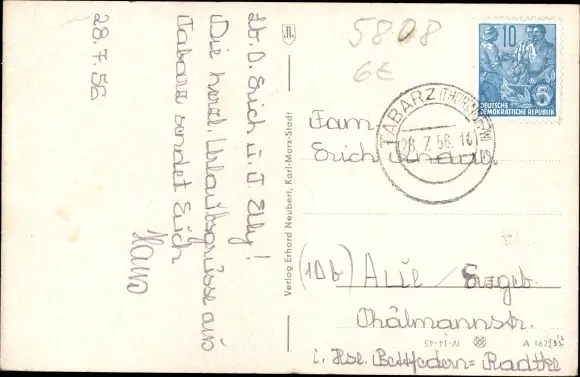 28.7.56
Lb. O. Erich u. T. Elly!
Die herzl. Urlaubsgrüsse aus
Tabarz sendet Euch
Hans
Verlag Erhard Neubert, Karl-Marx-Stadt
5808
6E
10
DEUTSCHE
DEMOKRATISCHE REPUBLIK
TABARZ (THÜR WALD)
28.7.56
Fam.
Erich
(10b) Aue / Erzgeb.
Thälmannstr.
i. Hse. Bettfedern-Radtke
IV-14-45
A 162/55